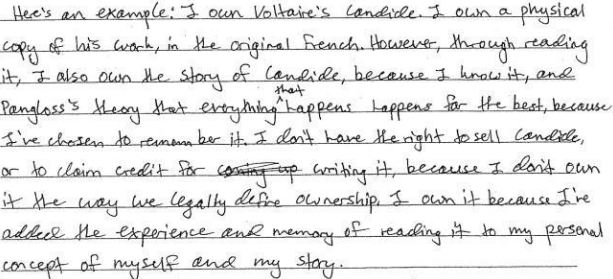 Here's an example: I own Voltaire's Candide. I own a physical
copy of his work, in the original French. However, through reading
it, I also own the story of Candide, because I know it, and
Pangloss's theory that everything that happens happens for the best, because
I've chosen to remember it. I don't have the right to sell Candide,
or to claim credit for coming up writing it, because I don't own
it the way we legally define ownership. I own it because I've
added the experience and memory of reading it to my personal
concept of myself and my story.